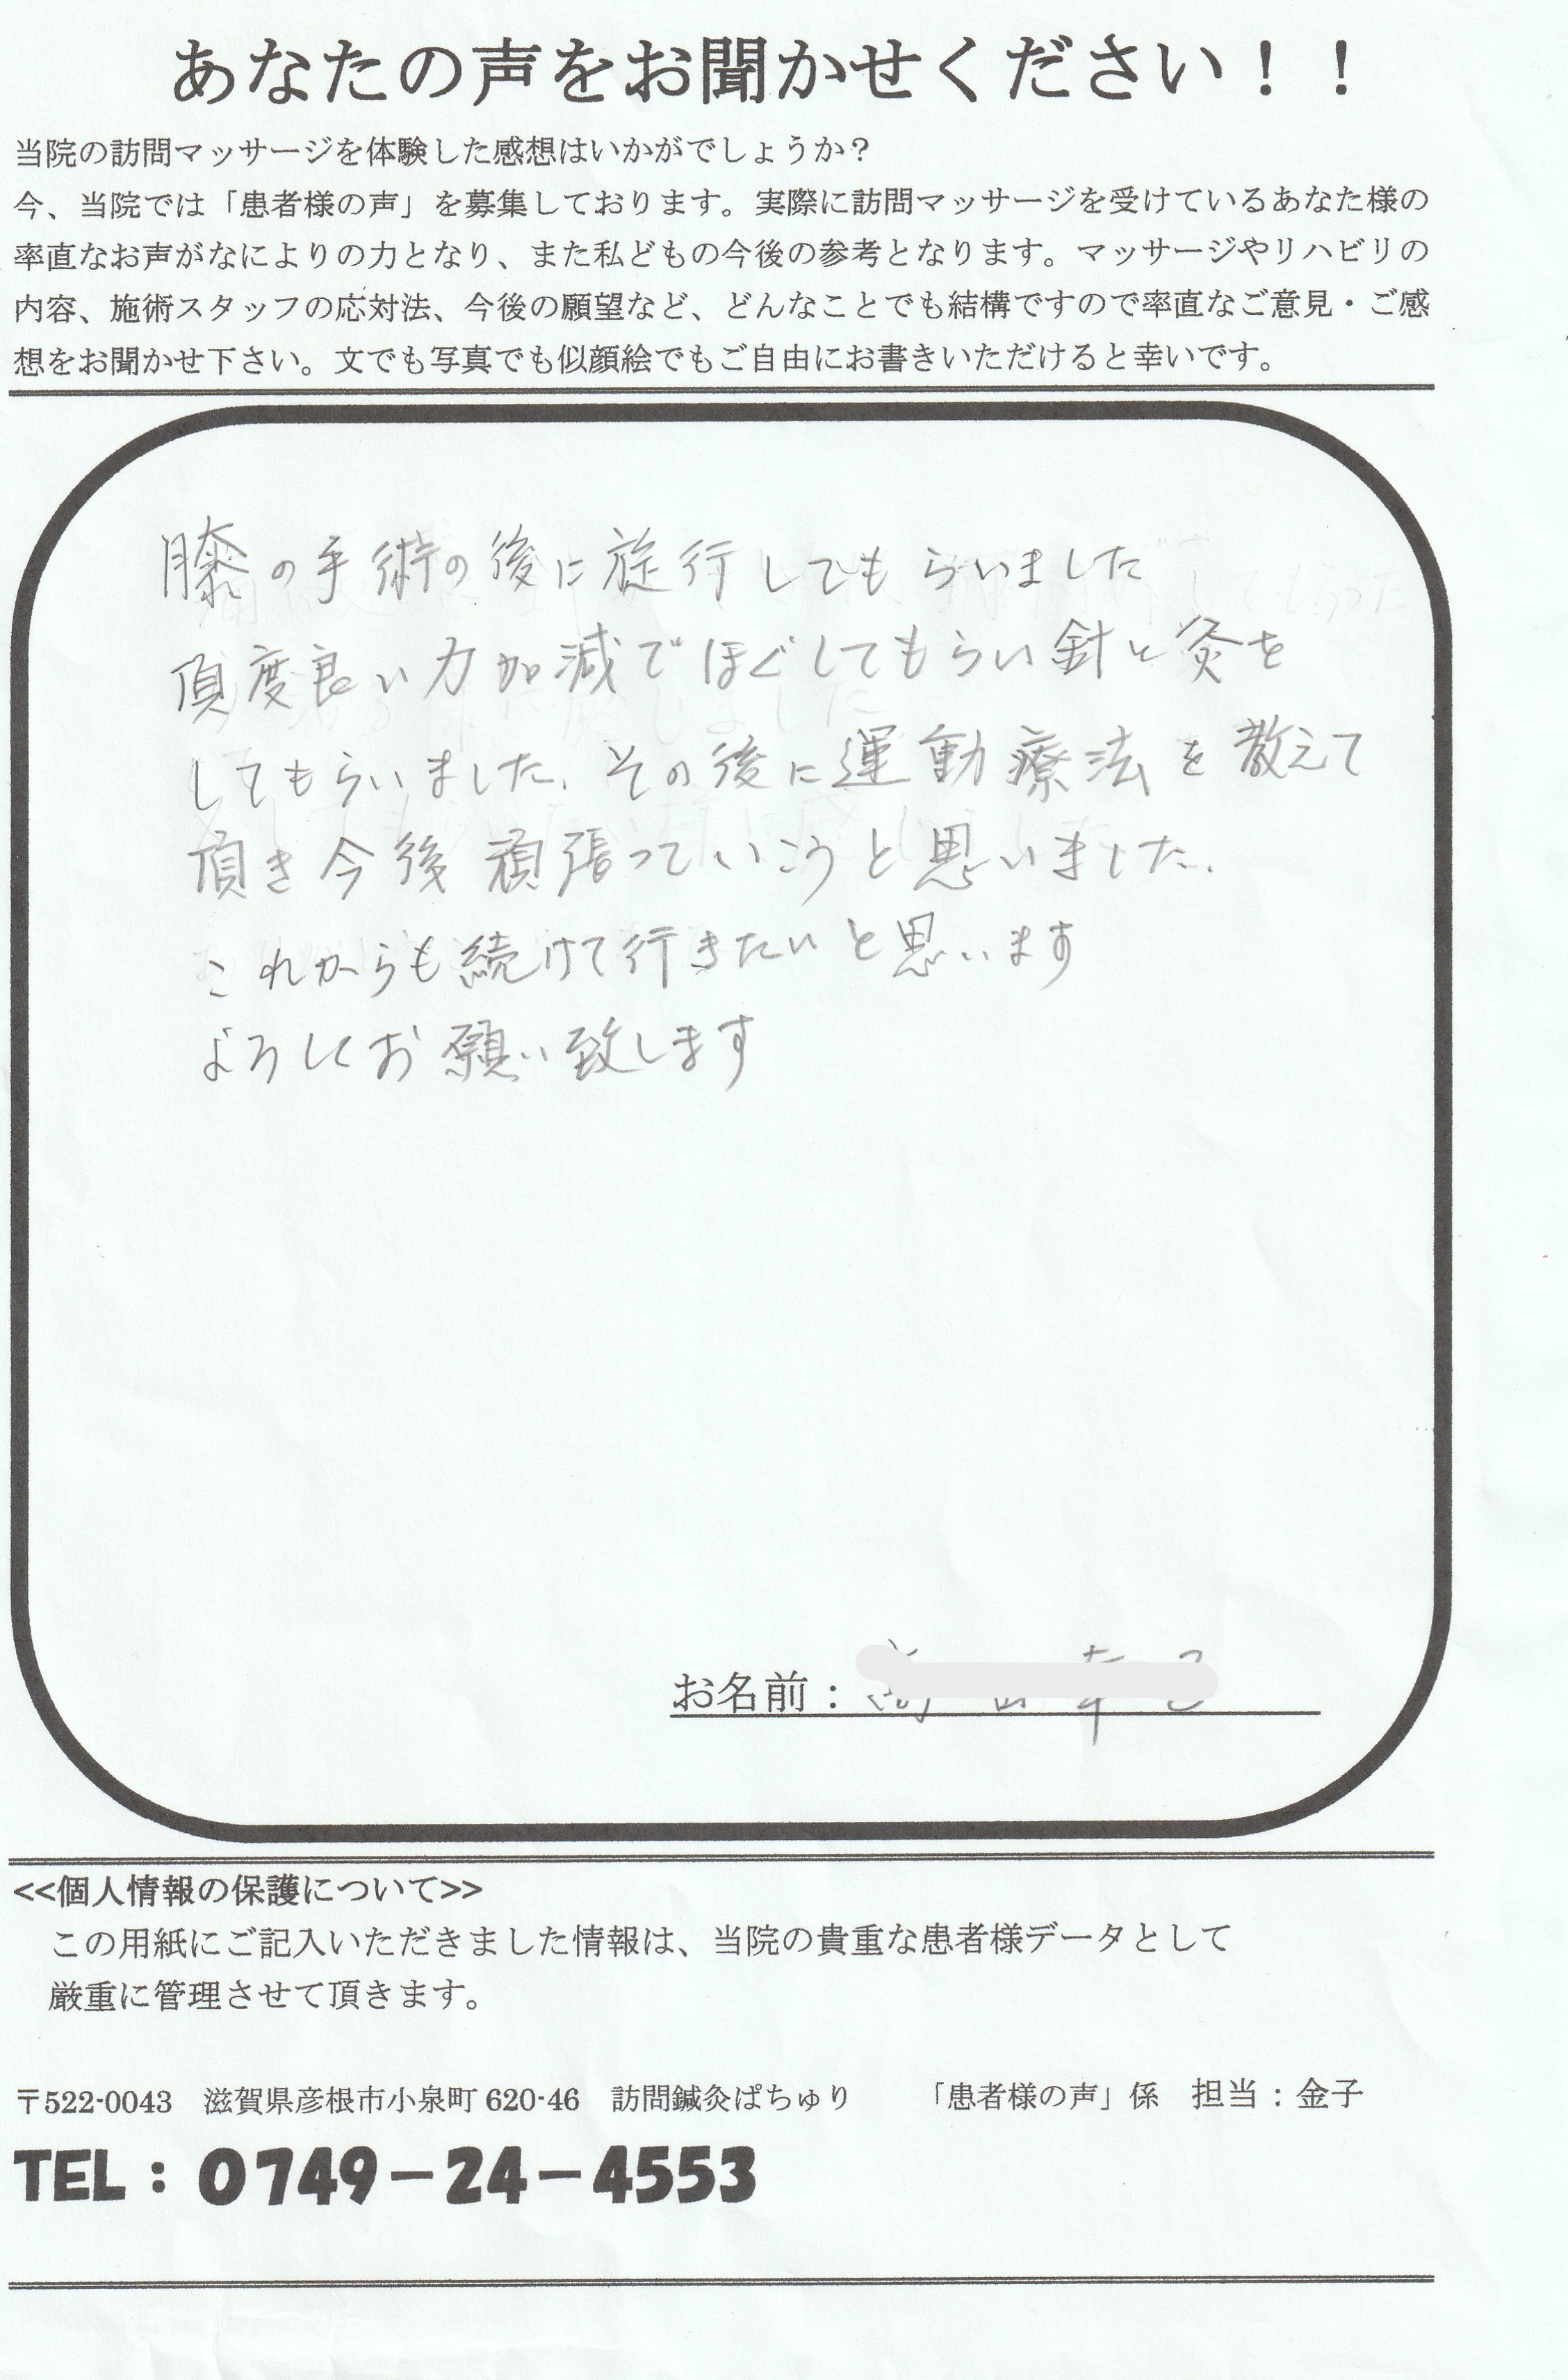 あなたの声をお聞かせください！！
当院の訪問マッサージを体験した感想はいかがでしょうか？
今、当院では「患者様の声」を募集しております。実際に訪問マッサージを受けているあなた様の
率直なお声がなによりの力となり、また私どもの今後の参考となります。マッサージやリハビリの
内容、施術スタッフの応対法、今後の願望など、どんなことでも結構ですので率直なご意見・ご感
想をお聞かせ下さい。文でも写真でも似顔絵でもご自由にお書きいただけると幸いです。
膝の手術の後に施行してもらいました
頂度良い力加減でほぐしてもらい針と灸を
してもらいました。その後に運動療法を教えて
頂き今後頑張っていこうと思いました。
これからも続けて行きたいと思います
よろしくお願い致します
お名前：
<<個人情報の保護について>>
この用紙にご記入いただきました情報は、当院の貴重な患者様データとして
厳重に管理させて頂きます。
〒522-0043　滋賀県彦根市小泉町 620-46　訪問鍼灸ぱちゅり　　「患者様の声」係　担当：金子
TEL：0749－24－4553